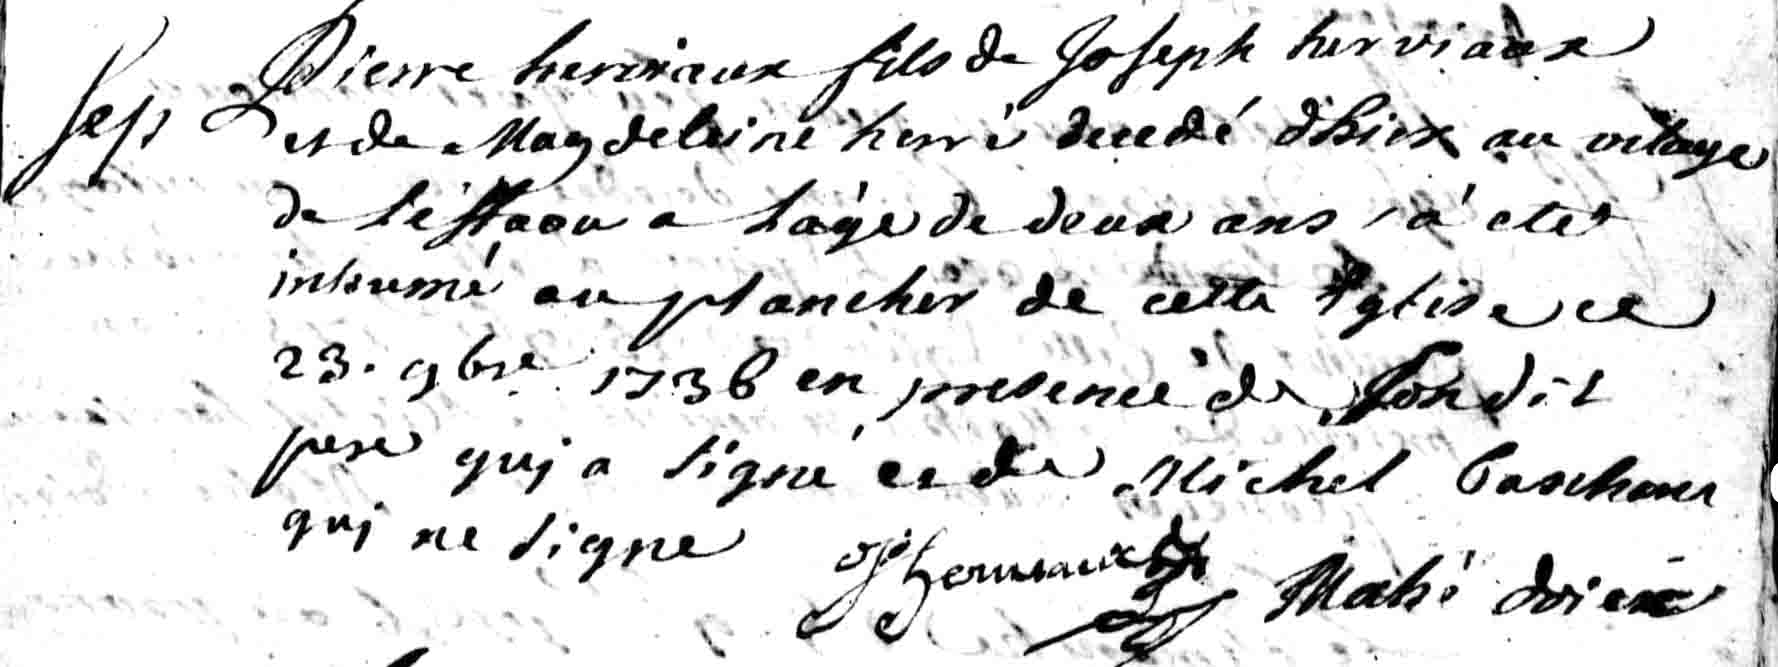 Pierre herviaux fils de Joseph herviaux
Sep et de Magdeleine hervé decedé dhier au vilage
de a l'âge de deux ans a été
inhumé au plancher de cette Eglise ce
23. 9bre 1736 en presence de son dit
pere qui a signé et de Michel
qui ne signe
J herviaux Mahé doien